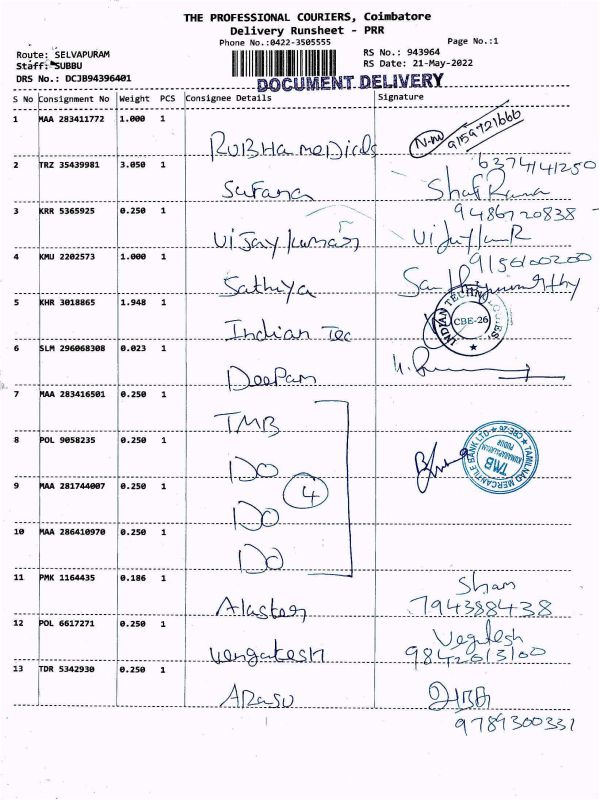 THE PROFESSIONAL COURIERS, Coimbatore
Delivery Runsheet - PRR
Phone No.:0422-3505555 Page No.:1
Route: SELVAPURAM RS No.: 943964
Staff: SUBBU RS Date: 21-May-2022
DRS No.: DCJB94396401
DOCUMENT DELIVERY
S No Consignment No Weight PCS Consignee Details Signature
1 MAA 283411772 1.000 1
RUBHA medicals 9159721666
2 TRZ 35439981 3.050 1 6374141250
Sufana
3 KRR 5365925 0.250 1 9486720838
Vijay kumar
4 KMU 2202573 1.000 1 9156100200
Sathiya
5 KHR 3018865 1.948 1
Indian Tec INDIAN TECHNOLOGIES CBE-26
6 SLM 296068308 0.023 1
Deepam
7 MAA 283416501 0.250 1
TMB
8 POL 9058235 0.250 1
DO TAMILNAD MERCANTILE BANK LTD TMB
9 MAA 281744007 0.250 1
4
DO
10 MAA 286410970 0.250 1
DO
11 PMK 1164435 0.186 1 Sham
Alasteer 794388438
12 POL 6617271 0.250 1 Vegatesh
Vengatesh
13 TDR 5342930 0.250 1
Arasu
9789300331